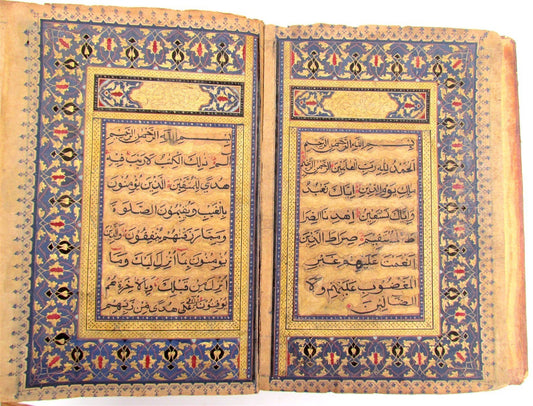 بسم الله الرحمن الرحيم
الحمد لله رب العالمين
ملك يوم الدين اياك نعبد
واياك نستعين اهدنا الصرا
ط المستقيم صراط الذين
انعمت عليهم غير
المغضوب عليهم ولا
الضالين
بسم الله الرحمن الرحيم
الم ذلك الكتب لا ريب فيه
هدى للمتقين الذين يؤمنون
بالغيب ويقيمون الصلوة
ومما رزقنهم ينفقون والذين
يؤمنون بما انزل اليك وما
انزل من قبلك وبالاخرة هم
يوقنون اولئك على هدى من ربهم